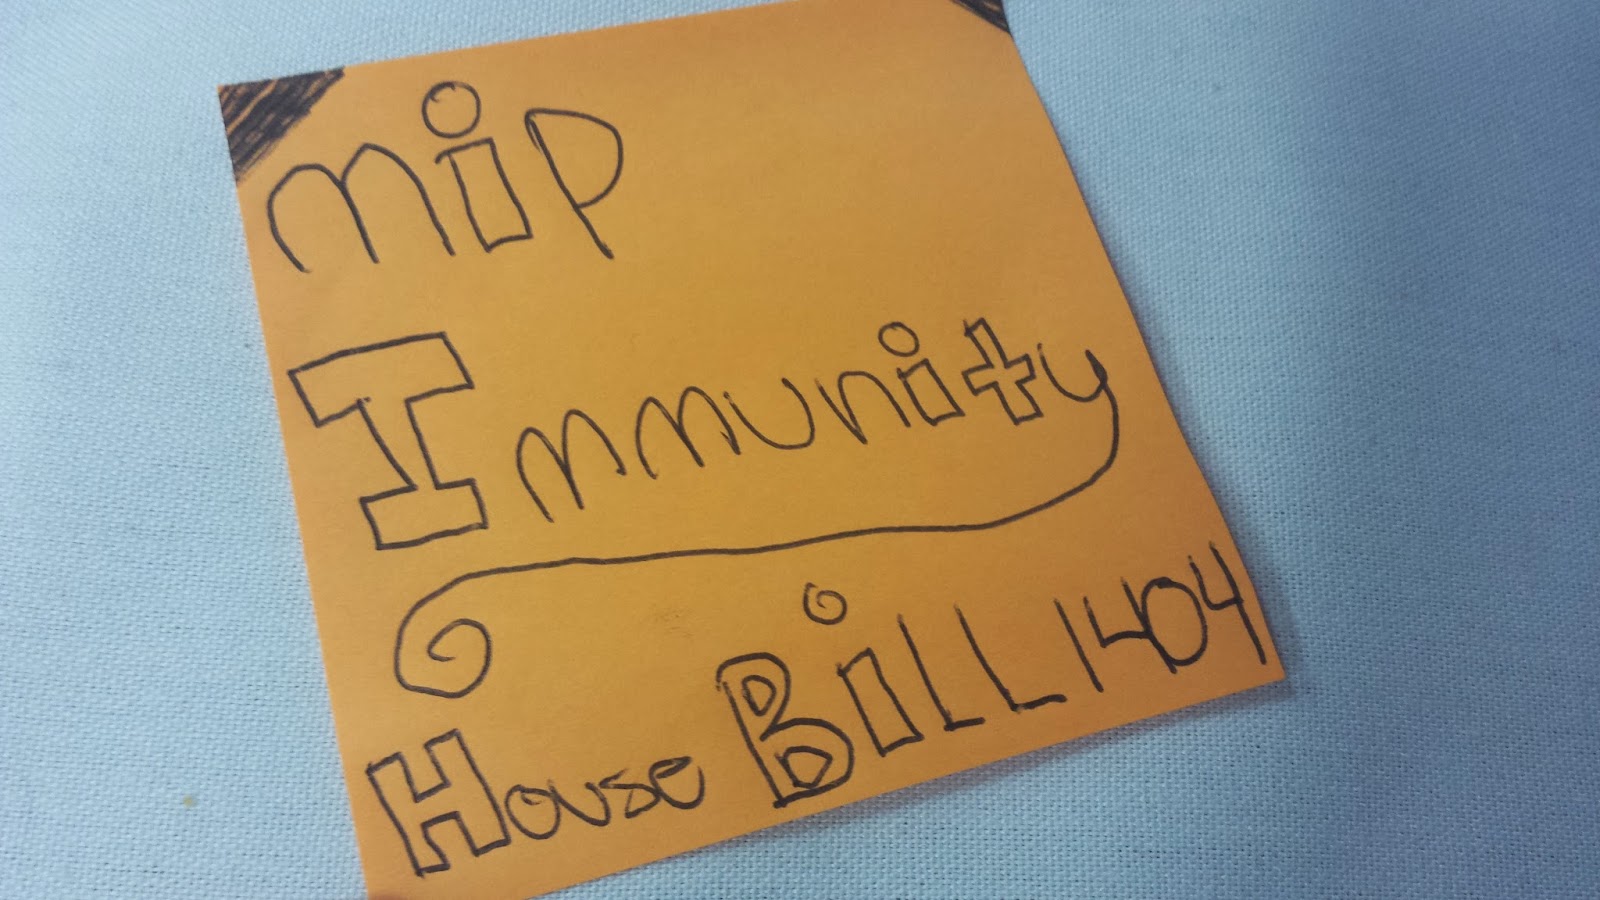 mip
Immunity
House BiLL 1404